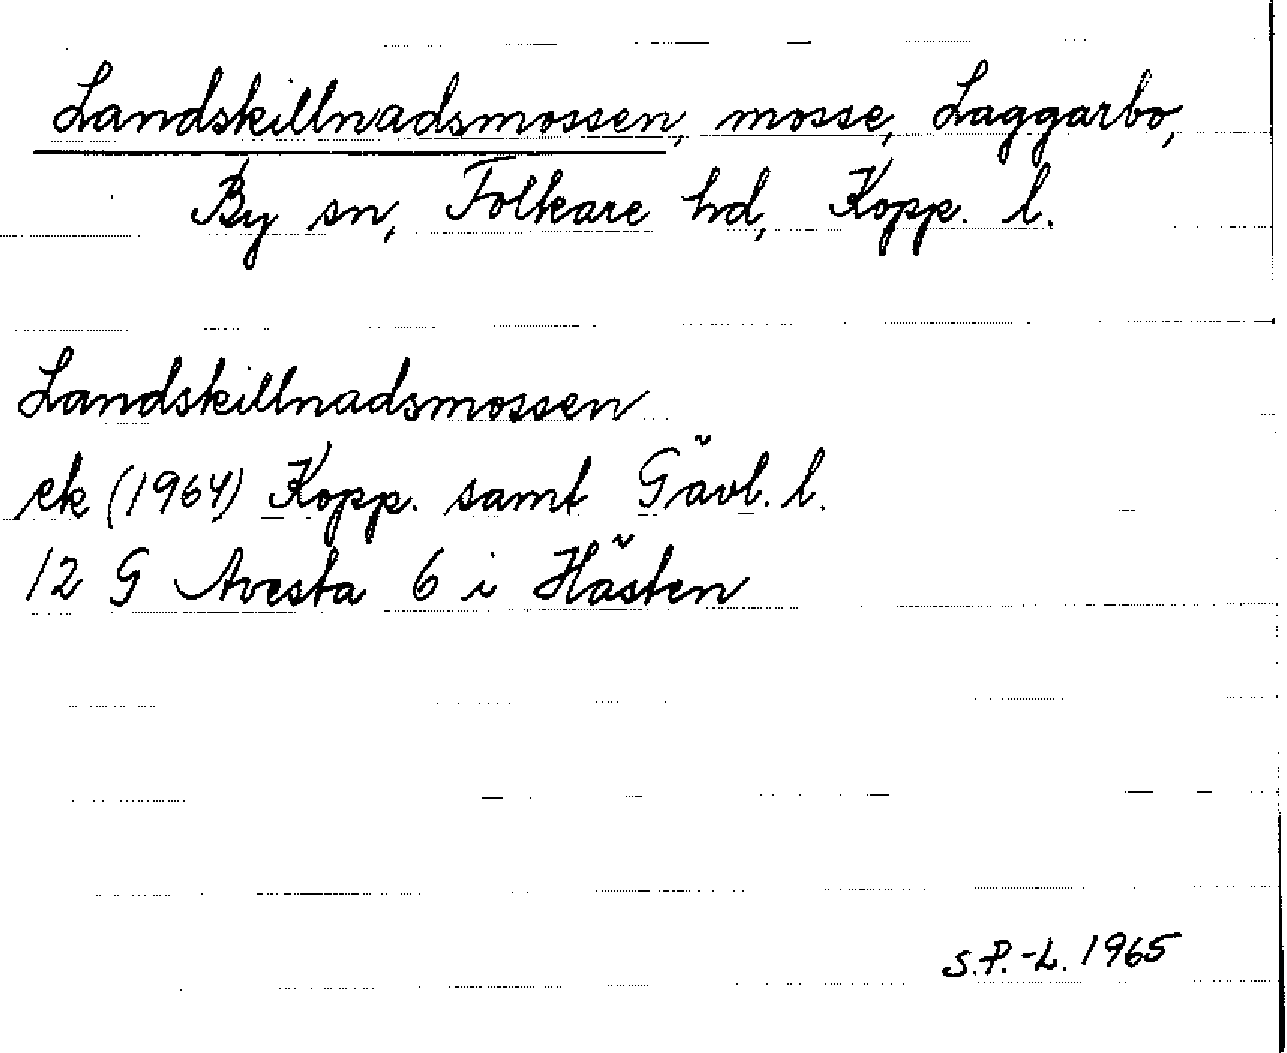 Landskillnadsmossen, mosse, Laggarbo,
By sn, Folkare hd, Kopp. l.
Landskillnadsmossen
ek (1964) Kopp. samt Gävl. l.
12 G Avesta 6 i Hästen
S.P.-L. 1965